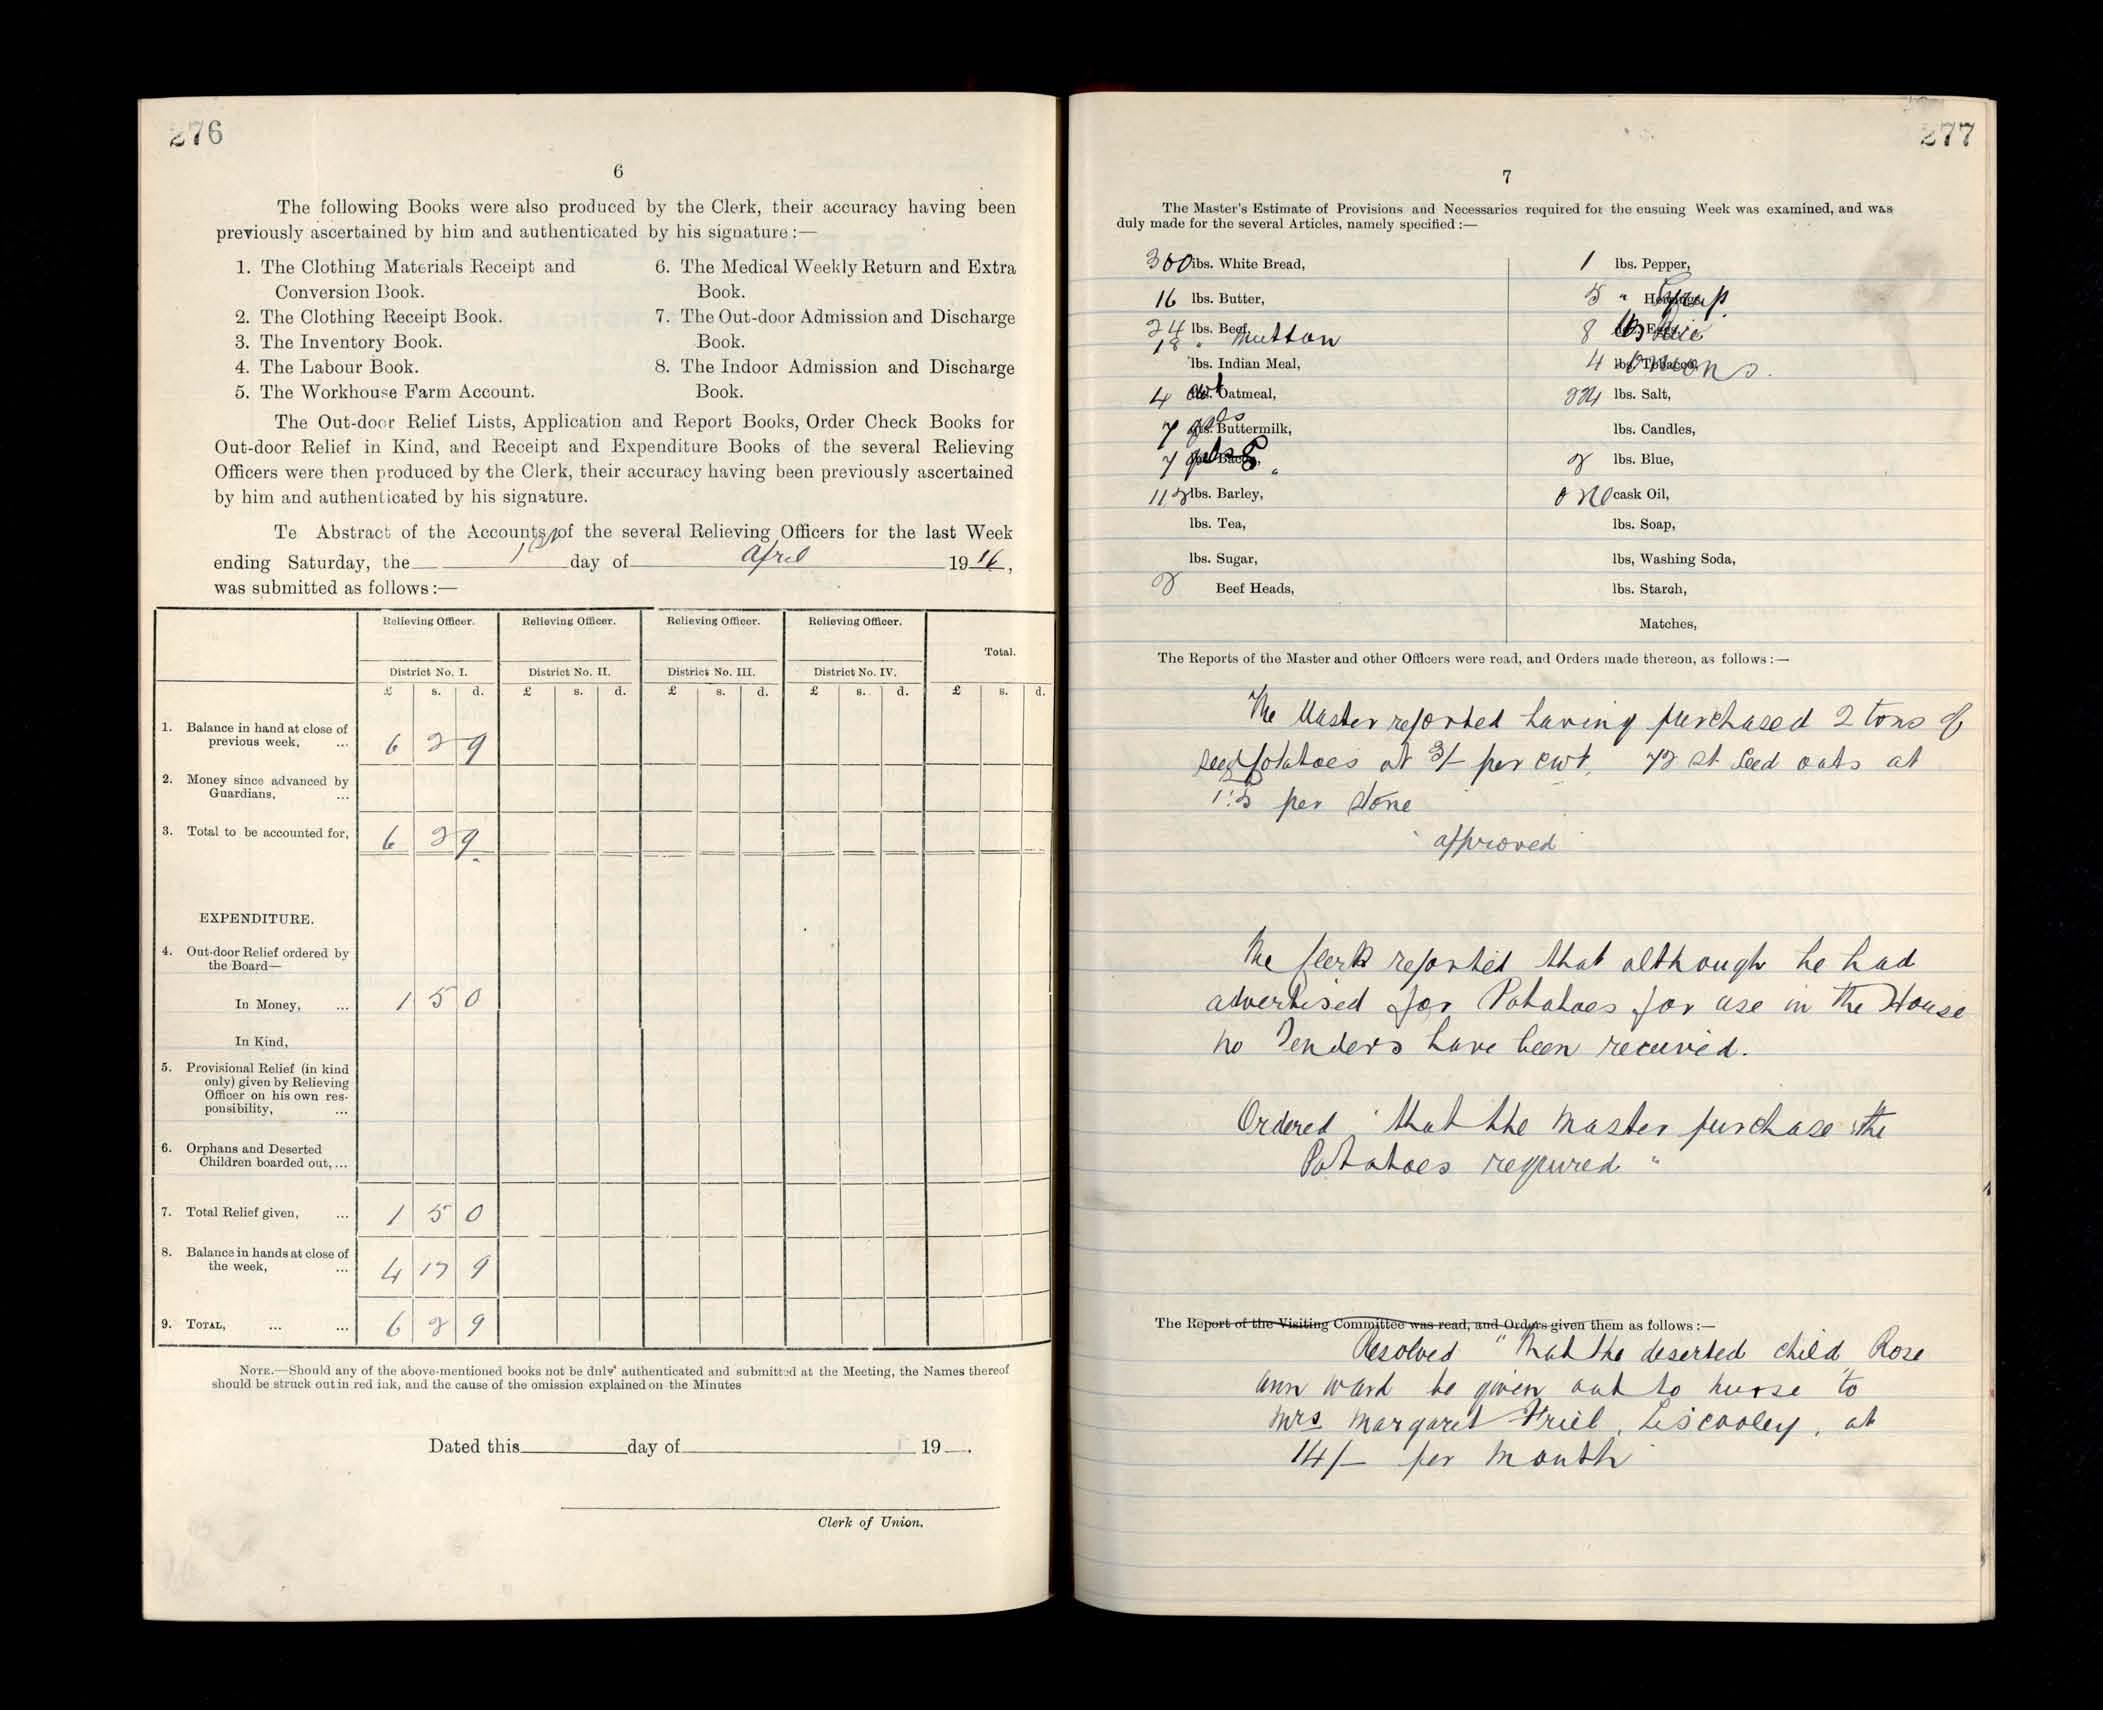 276
6
The following Books were also produced by the Clerk, their accuracy having been
previously ascertained by him and authenticated by his signature :—
1. The Clothing Materials Receipt and
Conversion Book.
2. The Clothing Receipt Book.
3. The Inventory Book.
4. The Labour Book.
5. The Workhouse Farm Account.
6. The Medical Weekly Return and Extra
Book.
7. The Out-door Admission and Discharge
Book.
8. The Indoor Admission and Discharge
Book.
The Out-door Relief Lists, Application and Report Books, Order Check Books for
Out-door Relief in Kind, and Receipt and Expenditure Books of the several Relieving
Officers were then produced by the Clerk, their accuracy having been previously ascertained
by him and authenticated by his signature.
Te Abstract of the Accounts of the several Relieving Officers for the last Week
ending Saturday, the 1st day of April 1916,
was submitted as follows :—
Relieving Officer. Relieving Officer. Relieving Officer. Relieving Officer.
Total.
District No. I. District No. II. District No. III. District No. IV.
£ s. d. £ s. d. £ s. d. £ s. d. £ s. d.
1. Balance in hand at close of
previous week, ... 6 2 9
2. Money since advanced by
Guardians, ...
3. Total to be accounted for, 6 2 9
EXPENDITURE.
4. Out-door Relief ordered by
the Board—
In Money, ... 1 5 0
In Kind,
5. Provisional Relief (in kind
only) given by Relieving
Officer on his own res-
ponsibility, ...
6. Orphans and Deserted
Children boarded out, ...
7. Total Relief given, ... 1 5 0
8. Balance in hands at close of
the week, ... 4 17 9
9. TOTAL, ... ... 6 2 9
NOTE.—Should any of the above-mentioned books not be duly authenticated and submitted at the Meeting, the Names thereof
should be struck out in red ink, and the cause of the omission explained on the Minutes
Dated this day of 19 .
Clerk of Union.
277
7
The Master's Estimate of Provisions and Necessaries required for the ensuing Week was examined, and was
duly made for the several Articles, namely specified :—
300 lbs. White Bread,
16 lbs. Butter,
24 lbs. Beef,
18 " Mutton
lbs. Indian Meal,
4 cwt Oatmeal,
7 gls Buttermilk,
7
112 lbs. Barley,
lbs. Tea,
lbs. Sugar,
2 Beef Heads,
1 lbs. Pepper,
5 " Syrup
8 lbs Rice
4 " Onions.
224 lbs. Salt,
lbs. Candles,
2 lbs. Blue,
one cask Oil,
lbs. Soap,
lbs, Washing Soda,
lbs. Starch,
Matches,
The Reports of the Master and other Officers were read, and Orders made thereon, as follows :—
The Master reported having purchased 2 tons of
seed potatoes at 3/- per cwt, 72 st Seed oats at
per Stone
approved
The Clerk reported that although he had
advertised for Potatoes for use in the House
no Tenders have been received.
Ordered " that the Master purchase the
Potatoes required "
The Report of the Visiting Committee was read, and Orders given them as follows :—
Resolved " That the deserted child Rose
Ann Ward be given out to nurse to
Mrs Margaret Friel, Liscooley, at
14/- per month